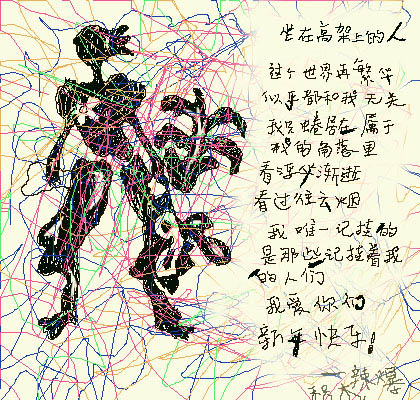 坐在高架上的人
这个世界再繁华
似乎都和我无关
我只蜷居在属于
我的角落里
看浮华渐逝
看过往云烟
我唯一记挂的
是那些记挂着我
的人们
我爱你们
新年快乐!
一辣爆